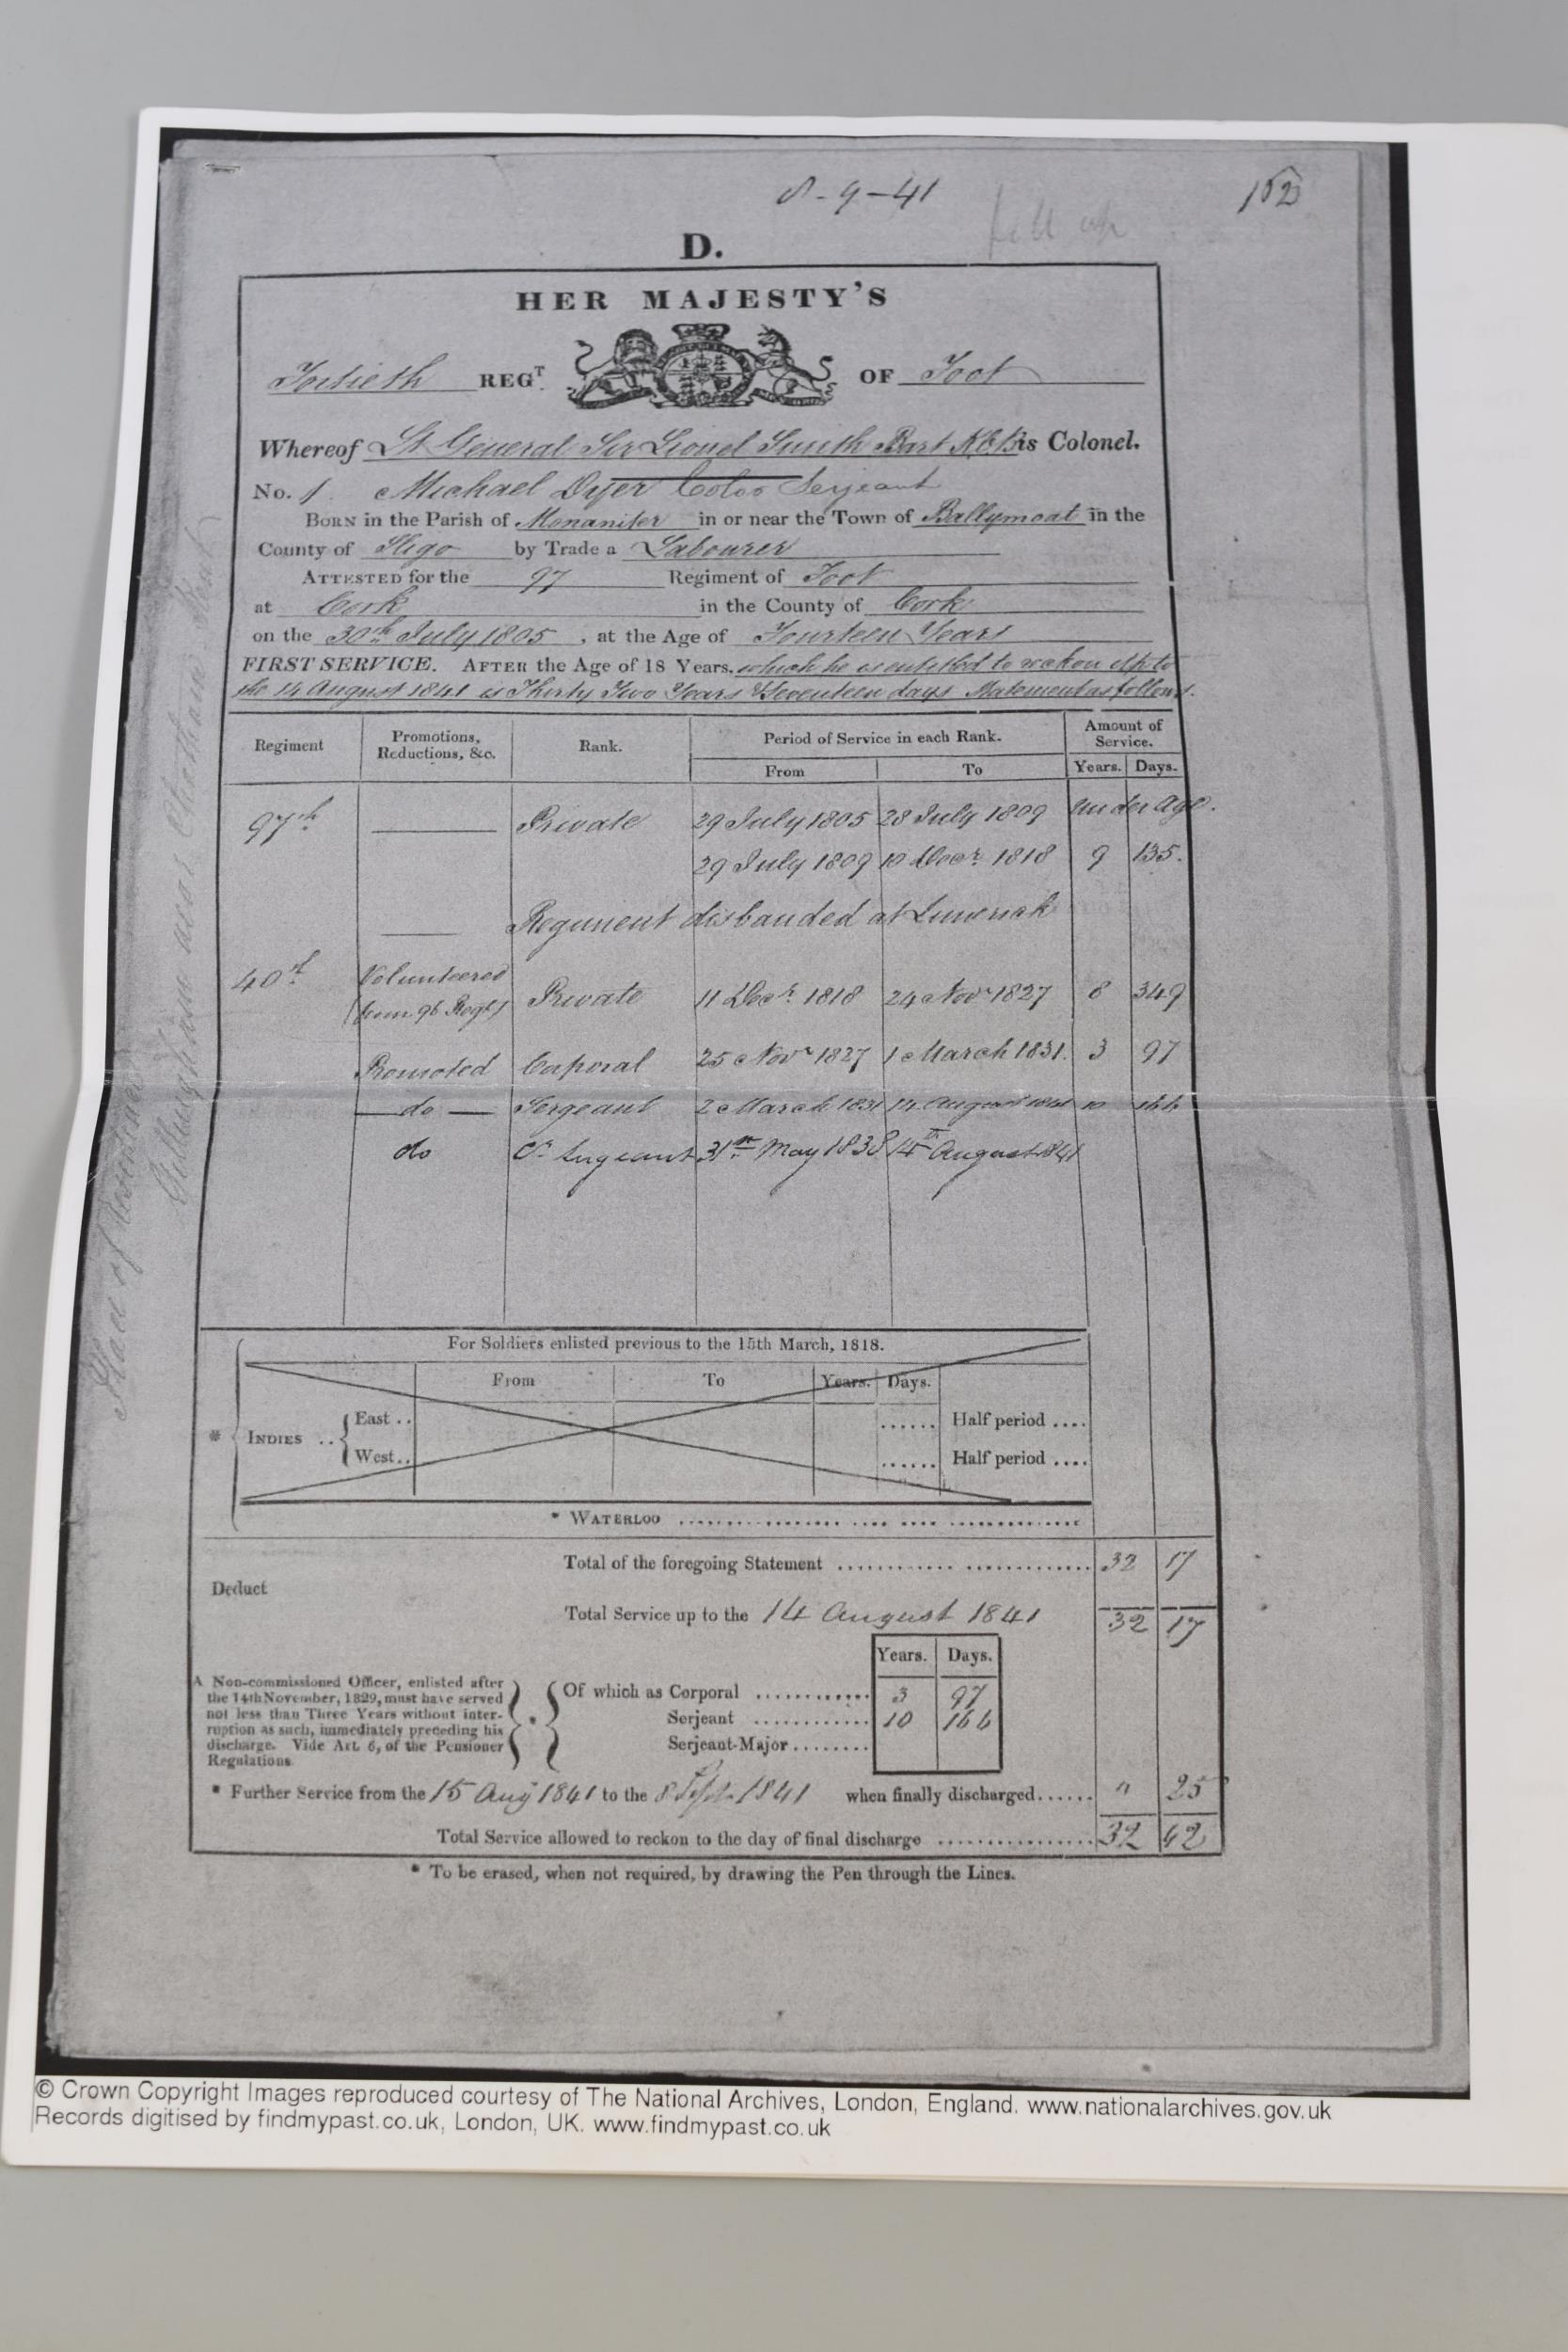 8-9-41
152
fill up
D.
HER MAJESTY'S
Fortieth REGT. OF Foot
Whereof Lt General Sir Lionel Smith Bart KCB is Colonel.
No. 1 Michael Dyer Color Serjeant
BORN in the Parish of in or near the Town of Ballymoat in the
County of Sligo by Trade a Labourer
ATTESTED for the 97 Regiment of Foot
at Cork in the County of Cork
on the 30th July 1805, at the Age of Fourteen Years
FIRST SERVICE. AFTER the Age of 18 Years, which he is entitled to reckon up to
the 14 August 1841 is Thirty Two Years & Seventeen days Statement as follows.
Regiment Promotions, Reductions, &c. Rank. Period of Service in each Rank. Amount of Service.
From To Years. Days.
97th Private 29 July 1805 28 July 1809 under age.
29 July 1809 10 Decr. 1818 9 135.
Regiment disbanded at Limerick
40th Volunteered from 96 Regt Private 11 Decr. 1818 24 Novr 1827 8 349
Promoted Corporal 25 Novr 1827 1 March 1831. 3 97
do Sergeant 2 March 1831 14 August 1841 10 166
do Cr. Sergeant 31st May 1838 14th August 1841
For Soldiers enlisted previous to the 15th March, 1818.
From To Years. Days.
* INDIES .. East .. ...... Half period ....
West.. ...... Half period ....
* WATERLOO
Total of the foregoing Statement 32 17
Deduct
Total Service up to the 14 August 1841 32 17
Years. Days.
A Non-commissioned Officer, enlisted after
the 14th November, 1829, must have served
not less than Three Years without inter-
ruption as such, immediately preceding his
discharge. Vide Art. 6, of the Pensioner
Regulations
Of which as Corporal ............ 3 97
Serjeant ............ 10 166
Serjeant-Major........
* Further Service from the 15 Aug 1841 to the 8 Sept. 1841 when finally discharged...... " 25
Total Service allowed to reckon to the day of final discharge 32 42
* To be erased, when not required, by drawing the Pen through the Lines.
Place of Residence
Gillingham near Chatham Kent
© Crown Copyright Images reproduced courtesy of The National Archives, London, England. www.nationalarchives.gov.uk
Records digitised by findmypast.co.uk, London, UK. www.findmypast.co.uk